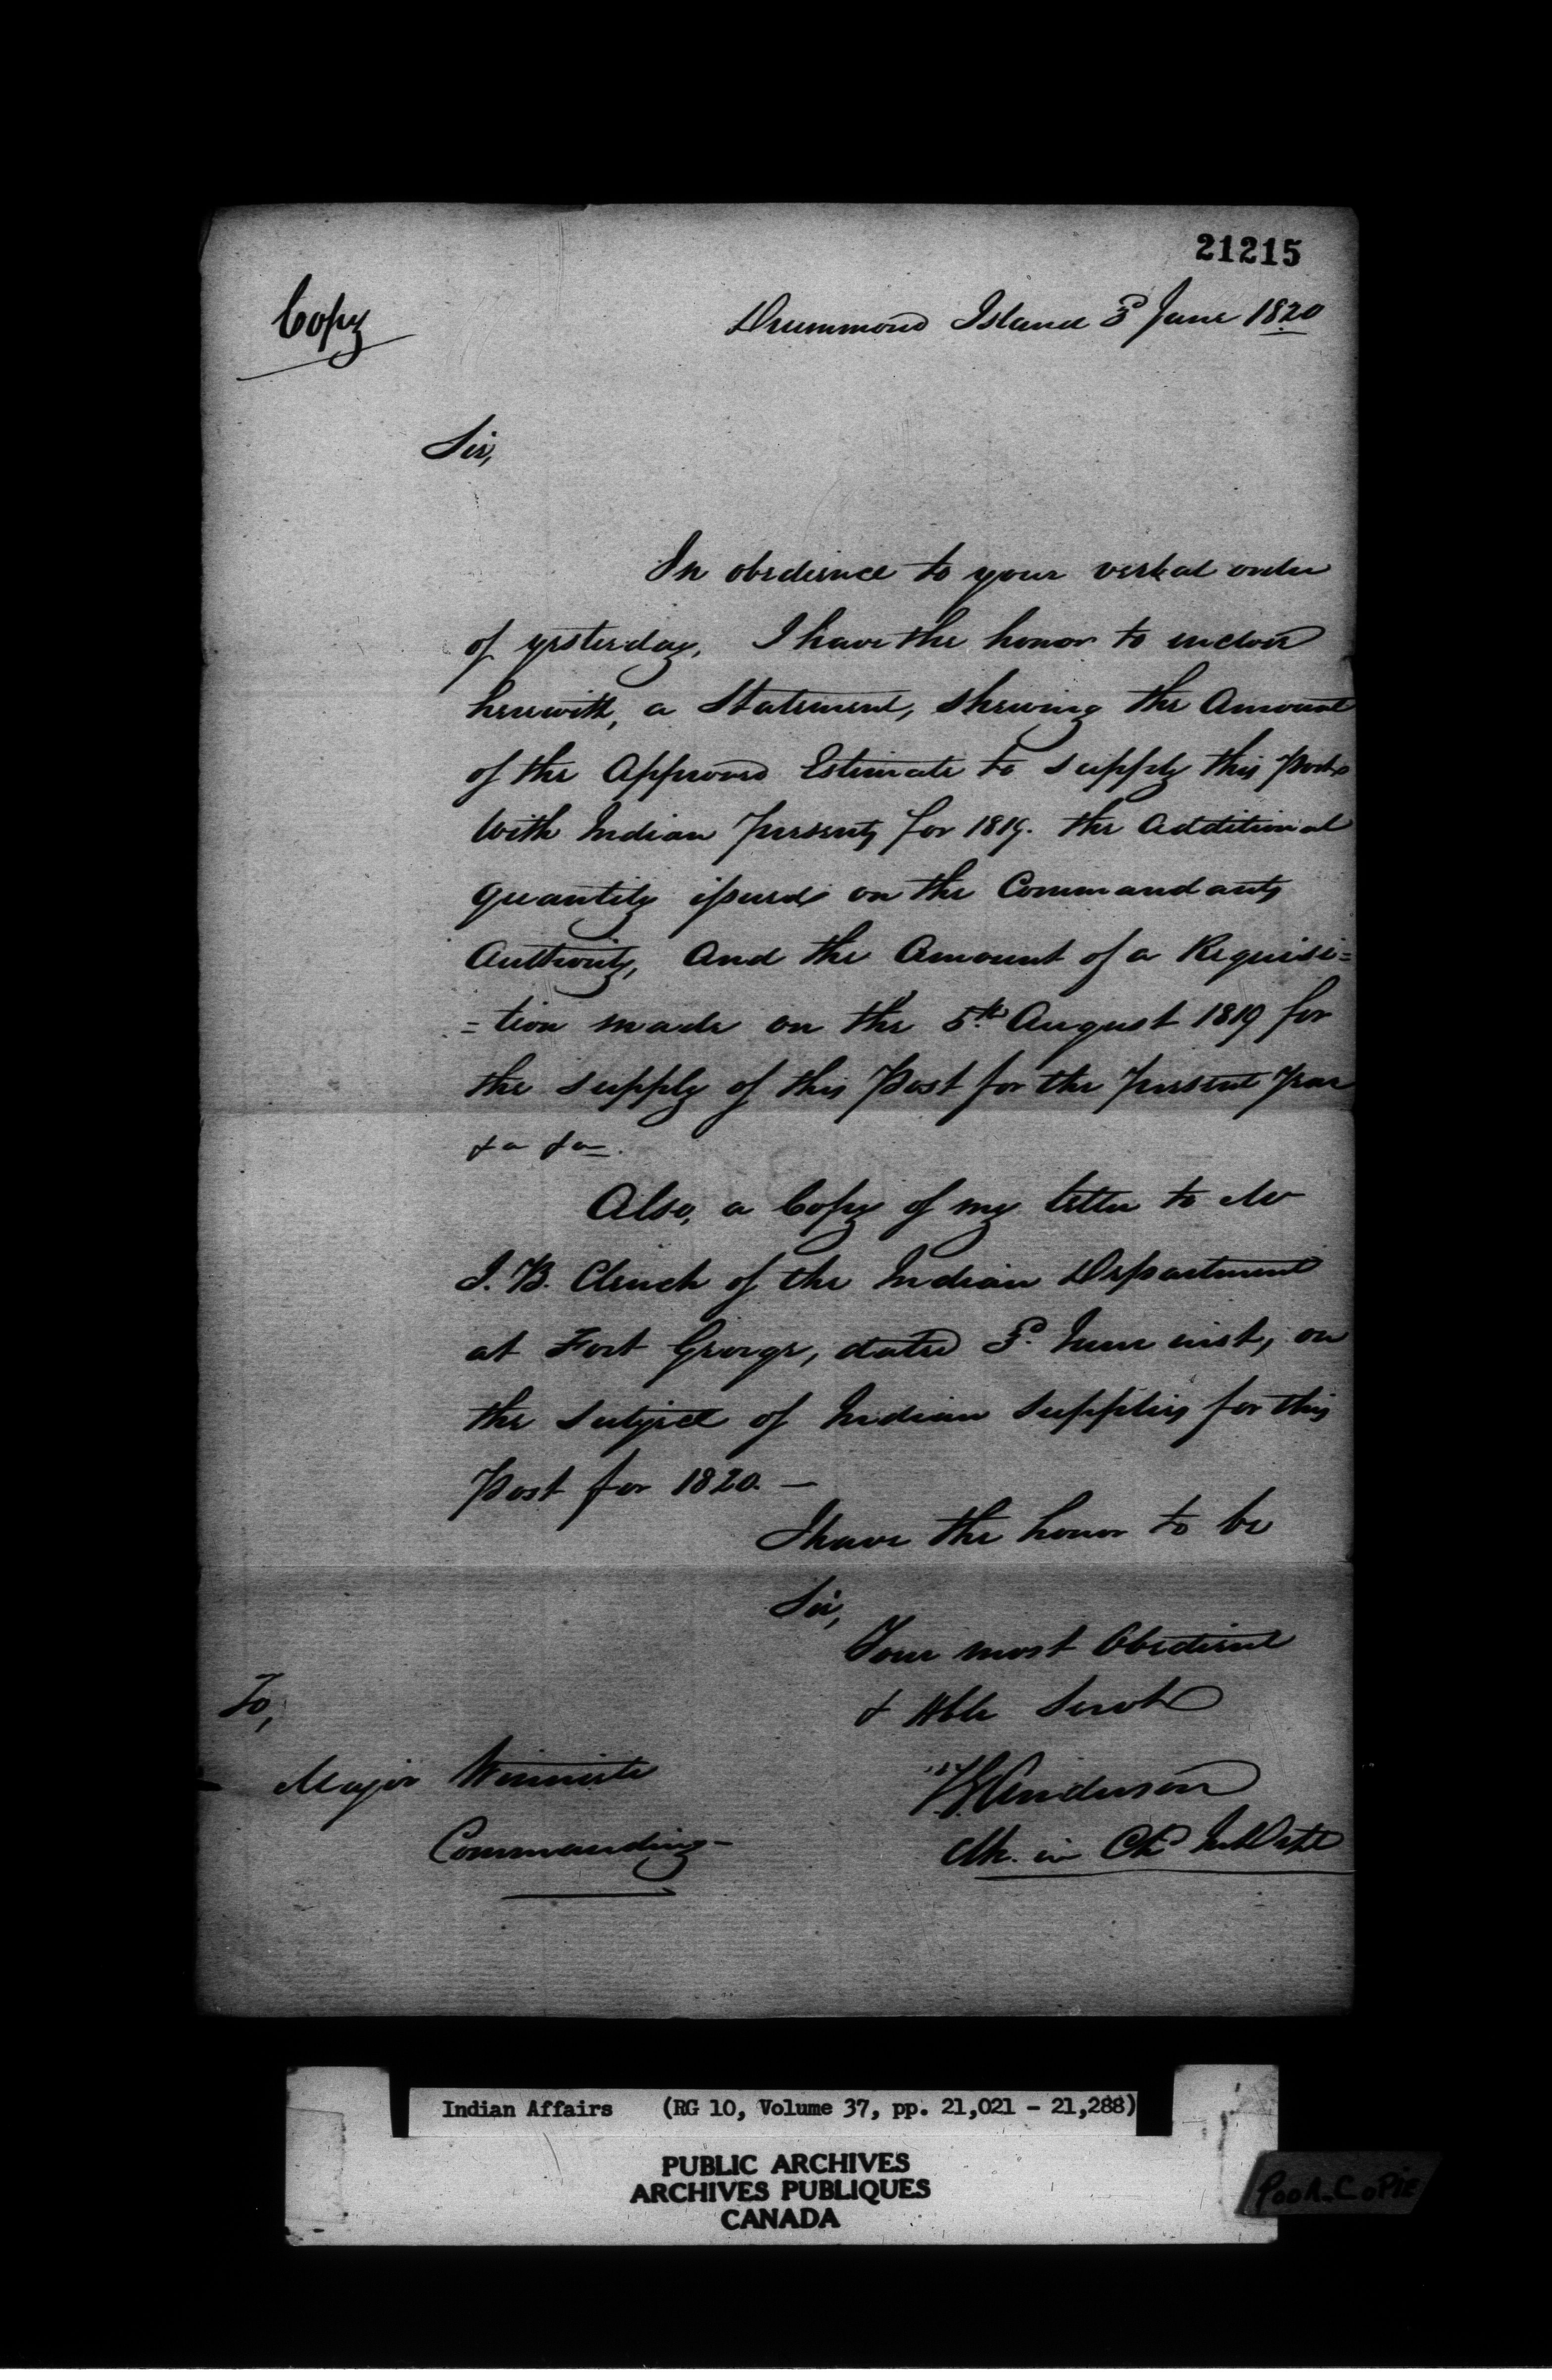 21215
Copy
Drummond Island 3d June 1820
Sir,
In obedience to your verbal order
of yesterday, I have the honor to inclose
herewith, a Statement, shewing the Amount
of the Approved Estimate to supply this Post
with Indian Presents for 1819. the Additional
quantity issued on the Commandants
Authority, And the Amount of a Requisi=
=tion made on the 5th August 1819 for
the supply of this Post for the present year
&a &a.
Also, a Copy of my letter to Mr
J. B. Clench of the Indian Department
at Fort George, dated 3d June inst, on
the subject of Indian supplies for this
Post for 1820. —
I have the honor to be
Sir,
Your most Obedient
& Hble Servt
To,
Major Winniette
Anderson
Commanding
Clk. in Ch Ind Dept
Indian Affairs (RG 10, Volume 37, pp. 21,021 - 21,288)
PUBLIC ARCHIVES
ARCHIVES PUBLIQUES
CANADA
Poor Copie